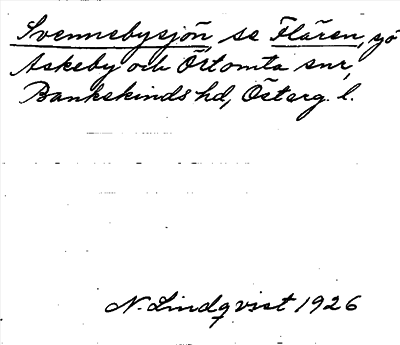 Svennebysjön se Flären, sjö
Askeby och Örtomta snr,
Bankekinds hd, Österg. l.
N. Lindqvist 1926